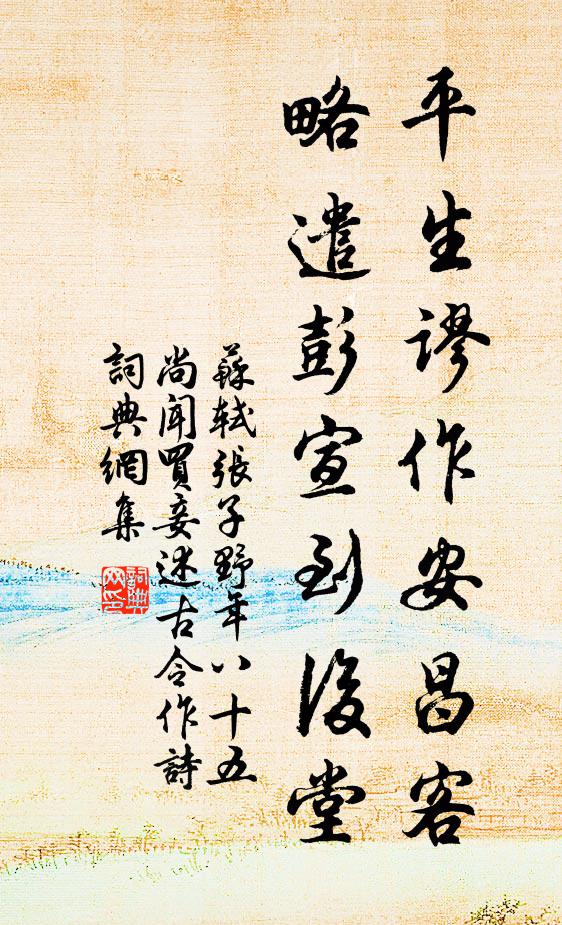 平生謬作安昌客
略遣彭宣到後堂
蘇軾張子野年八十五
尚聞買妾述古令作詩
詞典網集
詞典
网印